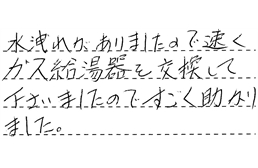 水洩れがありましたので速く
ガス給湯器を交換して
下さいましたのですごく助かり
ました。